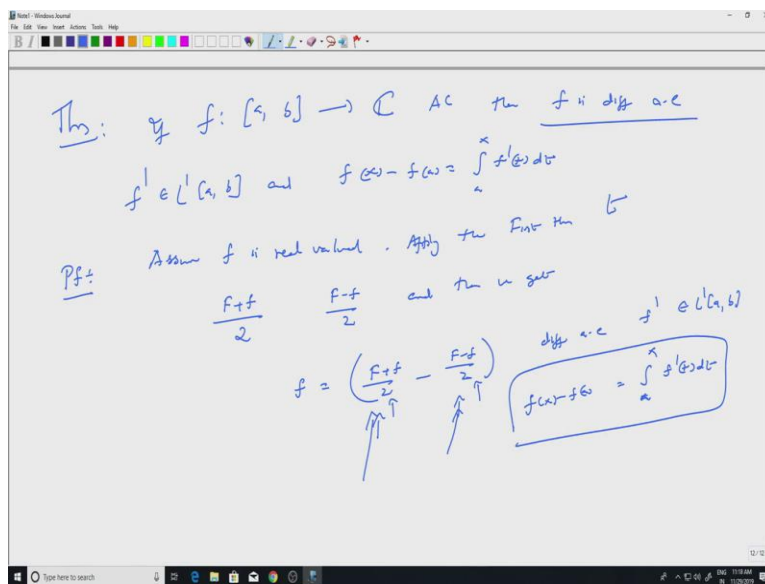 Note1 - Windows Journal
File Edit View Insert Actions Tools Help
Thm: If f: [a, b] → ℂ AC then f is diff a.e
f' ∈ L'[a, b] and f(x) - f(a) = ∫_a^x f'(t) dt
Pf: Assume f is real valued. Apply the First thm to
F+f/2 F-f/2 and then we get
f = (F+f/2 - F-f/2) diff a.e f' ∈ L'[a, b]
f(x) - f(a) = ∫_a^x f'(t) dt
12/12
Type here to search
ENG 11:18 AM
IN 11/29/2019